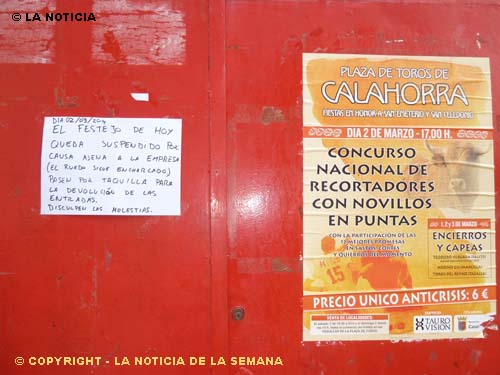 © LA NOTICIA
DIA 02/03/2014
EL FESTEJO DE HOY
QUEDA SUSPENDIDO POR
CAUSA AJENA A LA EMPRESA
(EL RUEDO SIGUE ENCHARCADO)
PASEN POR TAQUILLA PARA
LA DEVOLUCIÓN DE LAS
ENTRADAS.
DISCULPEN LAS MOLESTIAS.
PLAZA DE TOROS DE
CALAHORRA
FIESTAS EN HONOR A SAN EMETERIO Y SAN CELEDONIO
DIA 2 DE MARZO - 17,00 H.
CONCURSO
NACIONAL DE
RECORTADORES
CON NOVILLOS
EN PUNTAS
CON LA PARTICIPACIÓN DE LAS
12 MEJORES PROMESAS
EN SALTOS, CORTES
Y QUIEBROS DEL MOMENTO
15
1, 2 y 3 DE MARZO
ENCIERROS
Y CAPEAS
PRECIO UNICO ANTICRISIS: 6 €
VENTA DE LOCALIDADES
TAURO
VISION
© COPYRIGHT - LA NOTICIA DE LA SEMANA